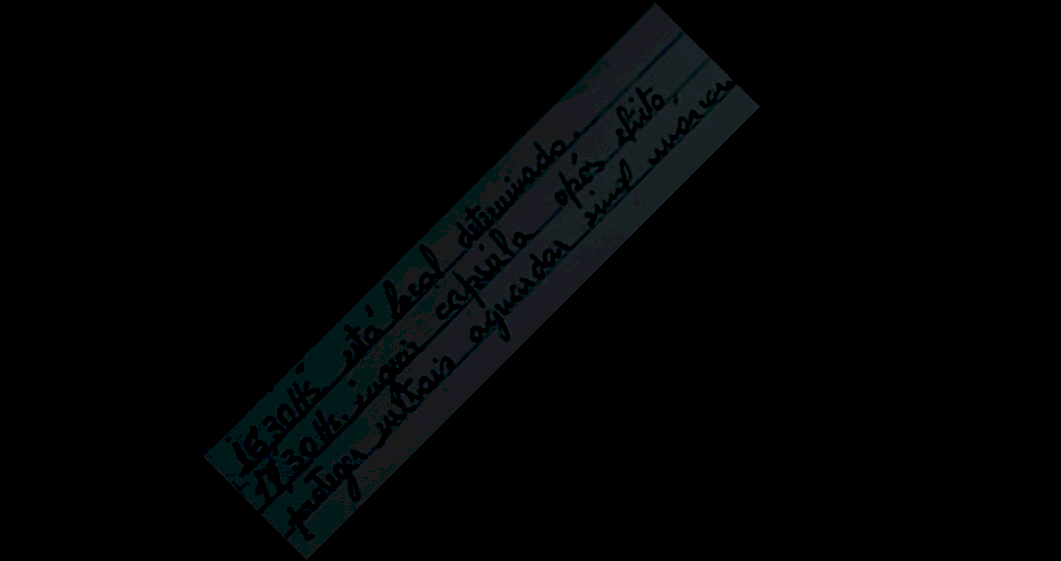 16,30Hs. está local determinado.
18,30Hs. ingerir capsula após efeito,
proteger metais aguardar sinal mascara